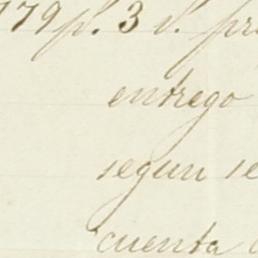 179 p. 3 v. pr
entrego
segun se
cuenta